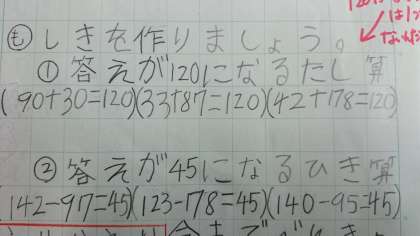 も しきを作りましょう。
①答えが120になるたし算
(90+30=120)(33+87=120)(42+178=120)
②答えが45になるひき算
(142-97=45)(123-178=45)(140-95=45)